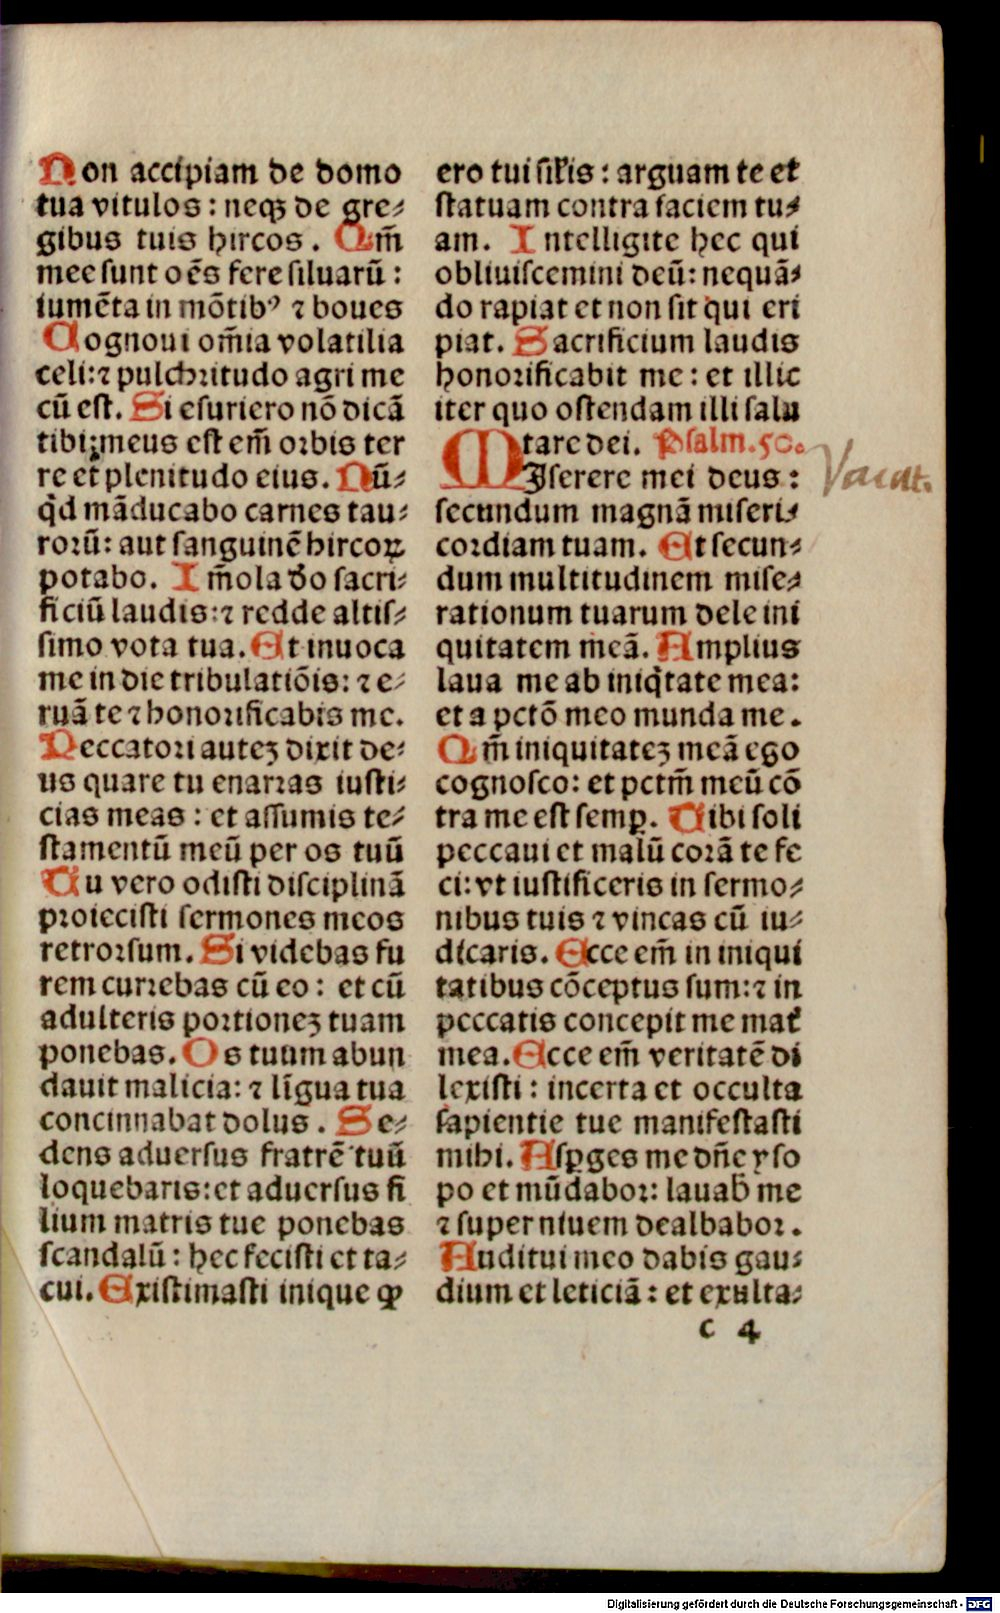 Non accipiam de domo
tua vitulos : neqȝ de gre⸗
gibus tuis hircos . Qm̄
mee sunt oēs fere siluarū :
iumēta in mōtibꝰ ⁊ boues
Cognoui om̄ia volatilia
celi:⁊ pulchritudo agri me
cū est. Si esuriero nō dicā
tibi:meus est em̄ orbis ter
re et plenitudo eius. Nū⸗
qd̄ māducabo carnes tau⸗
rorū: aut sanguinē hircoꝝ
potabo. Im̄ola deo sacri⸗
ficiū laudis:⁊ redde altis⸗
simo vota tua. Et inuoca
me in die tribulatiōis: ⁊ e⸗
ruā te ⁊ honorificabis me.
Peccatori auteȝ dixit de⸗
us quare tu enarras iusti⸗
cias meas : et assumis te⸗
stamentū meū per os tuū
Tu vero odisti disciplinā
proiecisti sermones meos
retrorsum. Si videbas fu
rem currebas cū eo : et cū
adulteris portioneȝ tuam
ponebas. Os tuum abun
dauit malicia: ⁊ līgua tua
concinnabat dolus . Se⸗
dens aduersus fratrē tuū
loquebaris:et aduersus fi
lium matris tue ponebas
scandalū : hec fecisti et ta⸗
cui. Existimasti inique ꝙ
ero tui sil̄is : arguam te et
statuam contra faciem tu⸗
am. Intelligite hec qui
obliuiscemini deū: nequā⸗
do rapiat et non sit qui eri
piat. Sacrificium laudis
honorificabit me : et illic
iter quo ostendam illi salu
tare dei. Psalm. 50.
MIserere mei deus :
Vacat.
secundum magnā miseri⸗
cordiam tuam. Et secun⸗
dum multitudinem mise⸗
rationum tuarum dele ini
quitatem meā. Amplius
laua me ab iniq̄tate mea:
et a pctō meo munda me .
Qm̄ iniquitateȝ meā ego
cognosco: et pctm̄ meū cō
tra me est semꝑ. Tibi soli
peccaui et malū corā te fe
ci: vt iustificeris in sermo⸗
nibus tuis ⁊ vincas cū iu⸗
dicaris. Ecce em̄ in iniqui
tatibus cōceptus sum:⁊ in
peccatis concepit me mat̄
mea. Ecce em̄ veritatē di
lexisti : incerta et occulta
sapientie tue manifestasti
mihi. Asꝑges me dn̄e yso
po et mūdabor: lauab̄ me
⁊ super niuem dealbabor .
Auditui meo dabis gau⸗
dium et leticiā : et exulta⸗
c 4
Digitalisierung gefördert durch die Deutsche Forschungsgemeinschaft - DFG